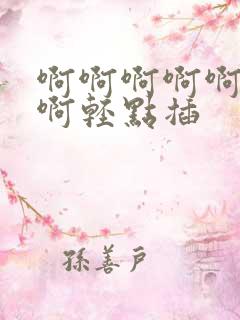 啊啊啊啊啊
啊轻點插
孫善戶